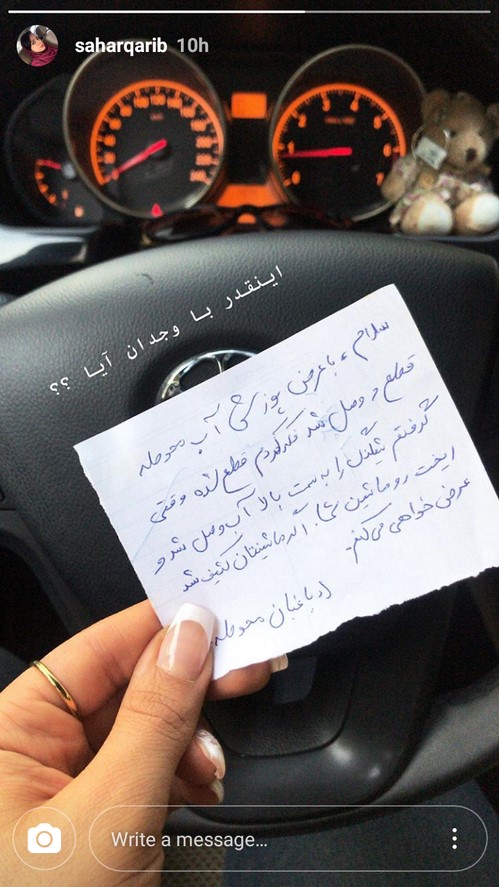 saharqarib 10h
اینقدر با وجدان آیا ؟؟
سلام، با عرض پوزش آب محوطه
قطع و وصل شد فکرکردم قطع شده وقتی
گرفتم شیلنگ را به سمت بالا آب وصل شد و
ریخت رو ماشین شما. اگر ماشینتان کثیف شد
عذر خواهی می‌کنم.
باغبان محوطه.
Write a message...